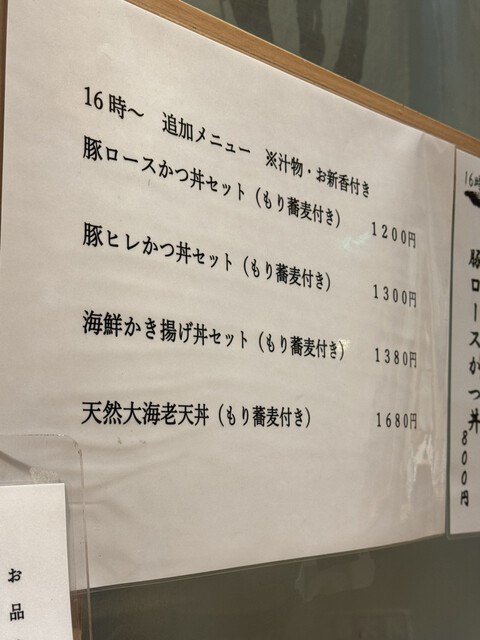 16時～　追加メニュー　※汁物・お新香付き
豚ロースかつ丼セット（もり蕎麦付き）　1200円
豚ヒレかつ丼セット（もり蕎麦付き）　1300円
海鮮かき揚げ丼セット（もり蕎麦付き）　1380円
天然大海老天丼（もり蕎麦付き）　1680円
16時
豚ロースかつ丼　800円
お品